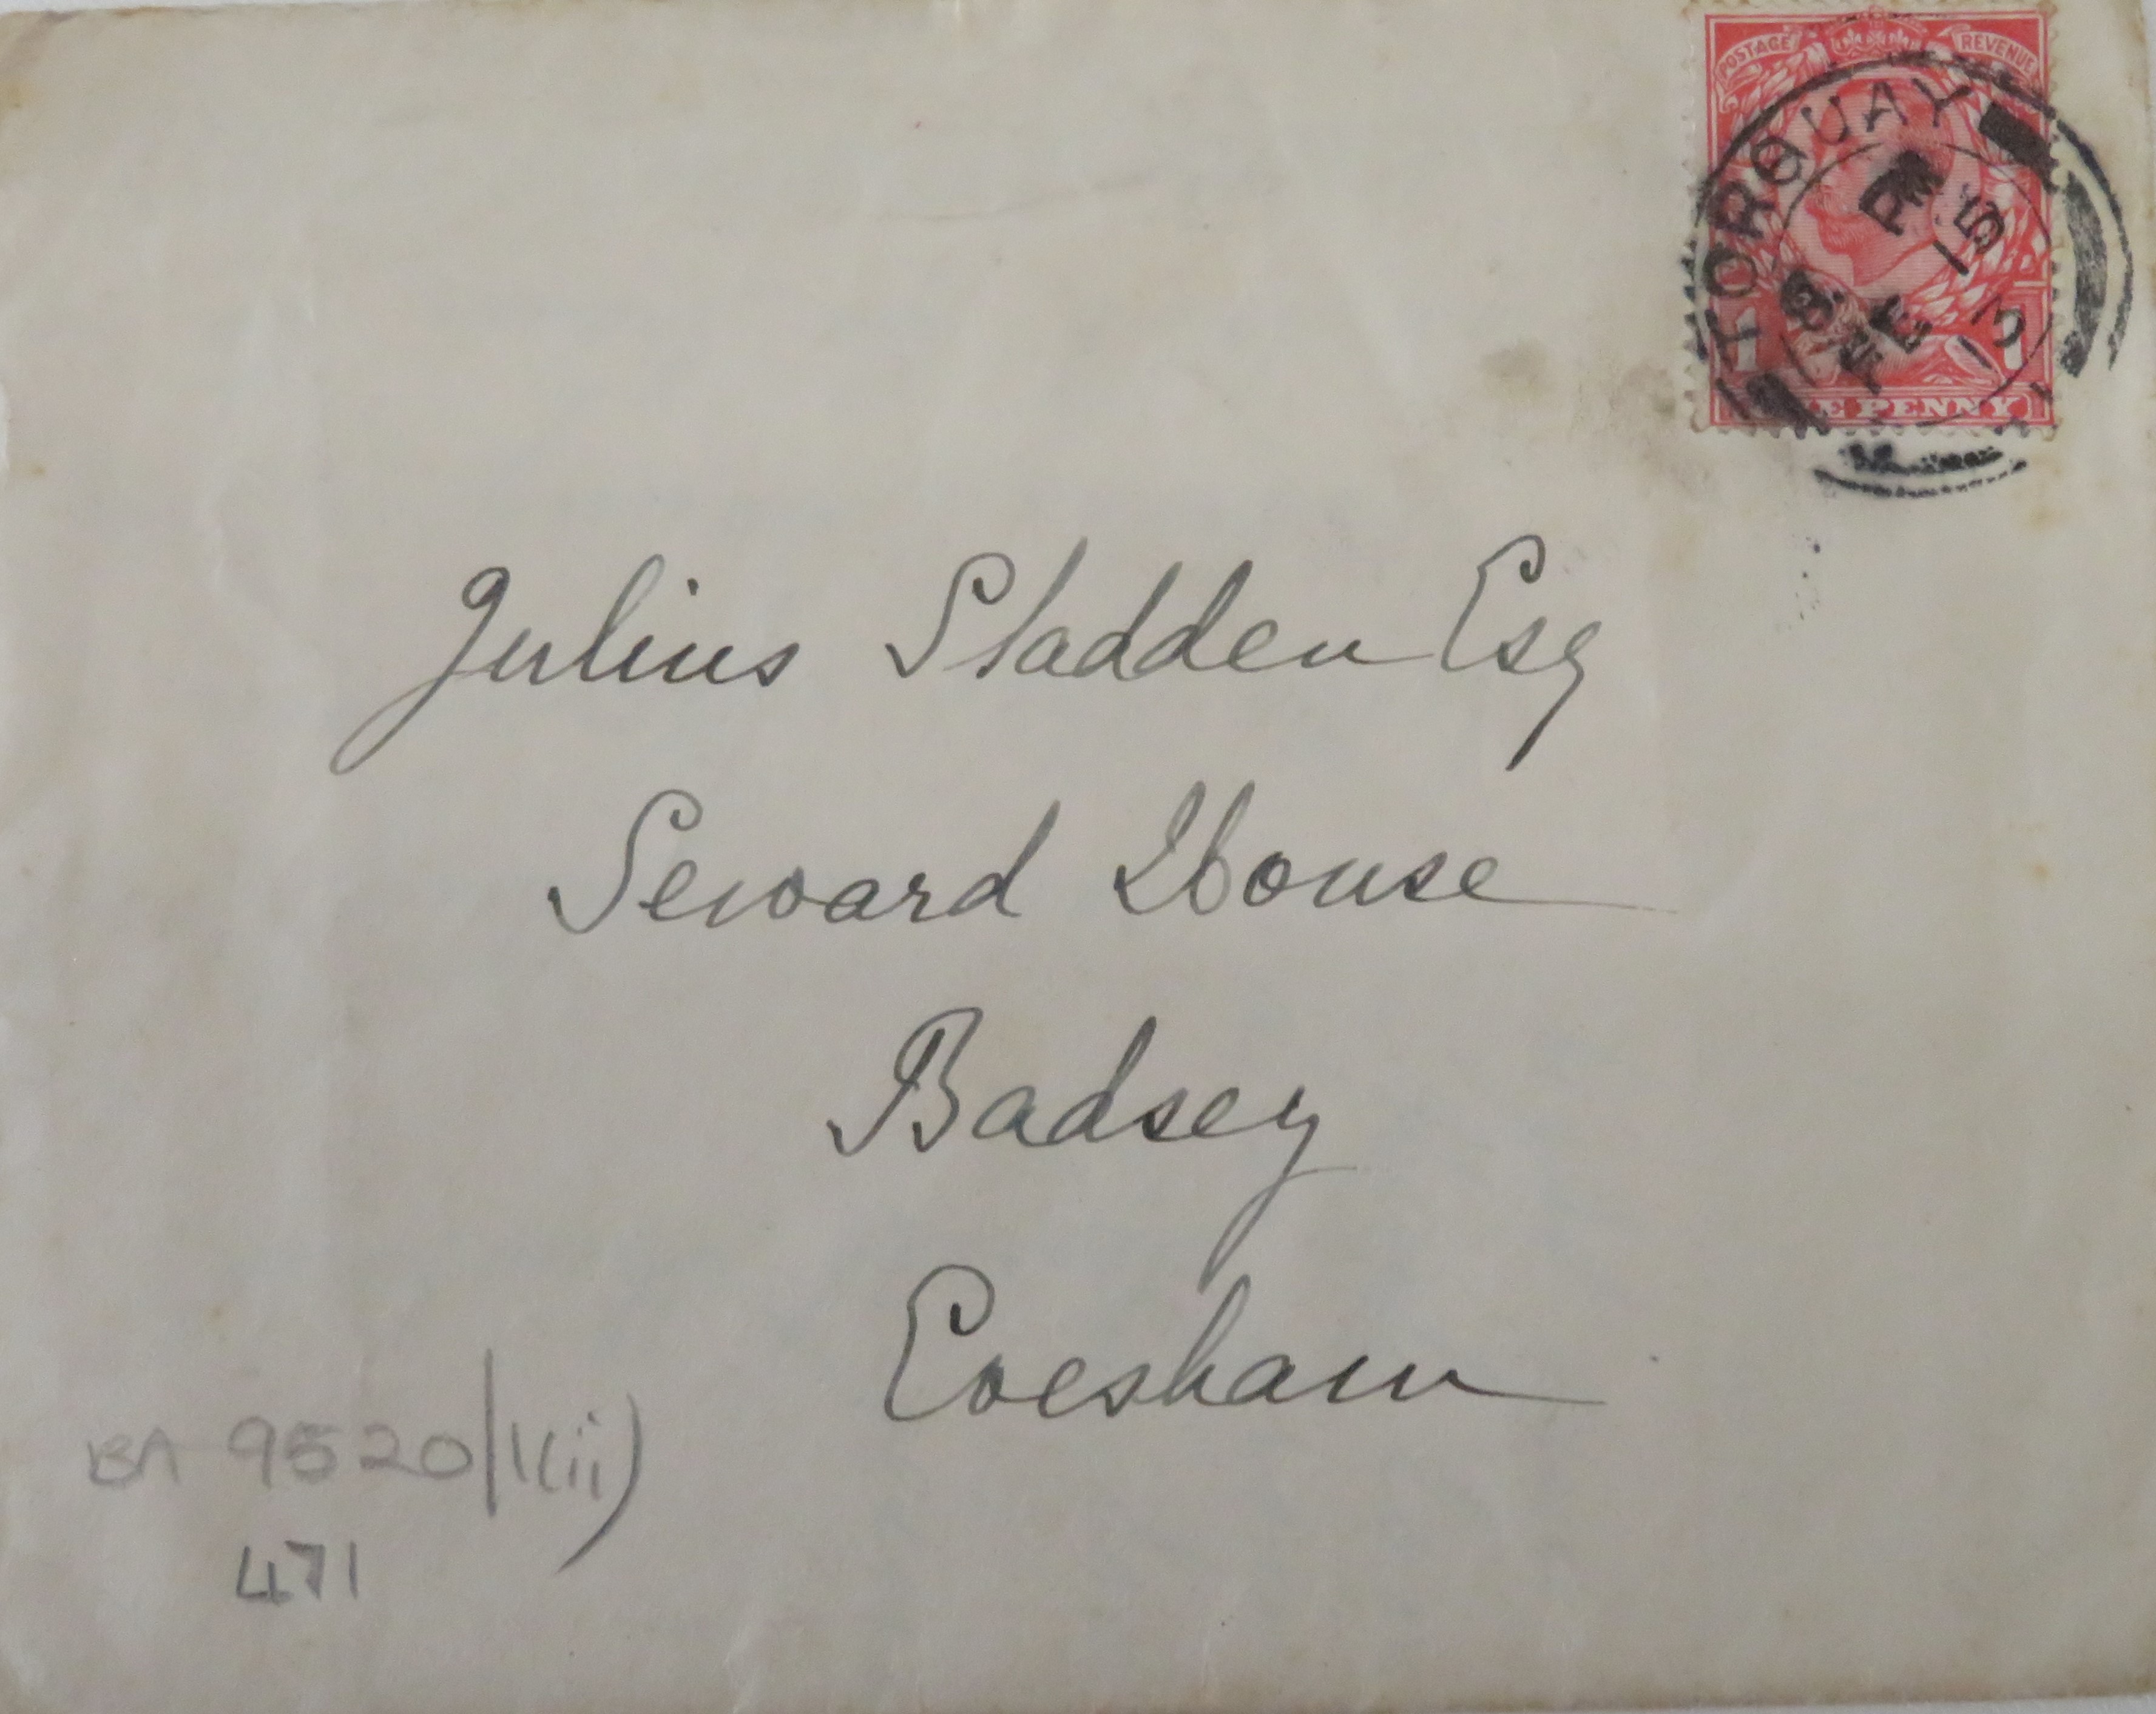 POSTAGE REVENUE
TORQUAY
8. PM
FE 15
13
1 1
ONE PENNY
Julius Sladden Esq
Seward House
Badsey
Evesham
BA 9520/1(ii)
471